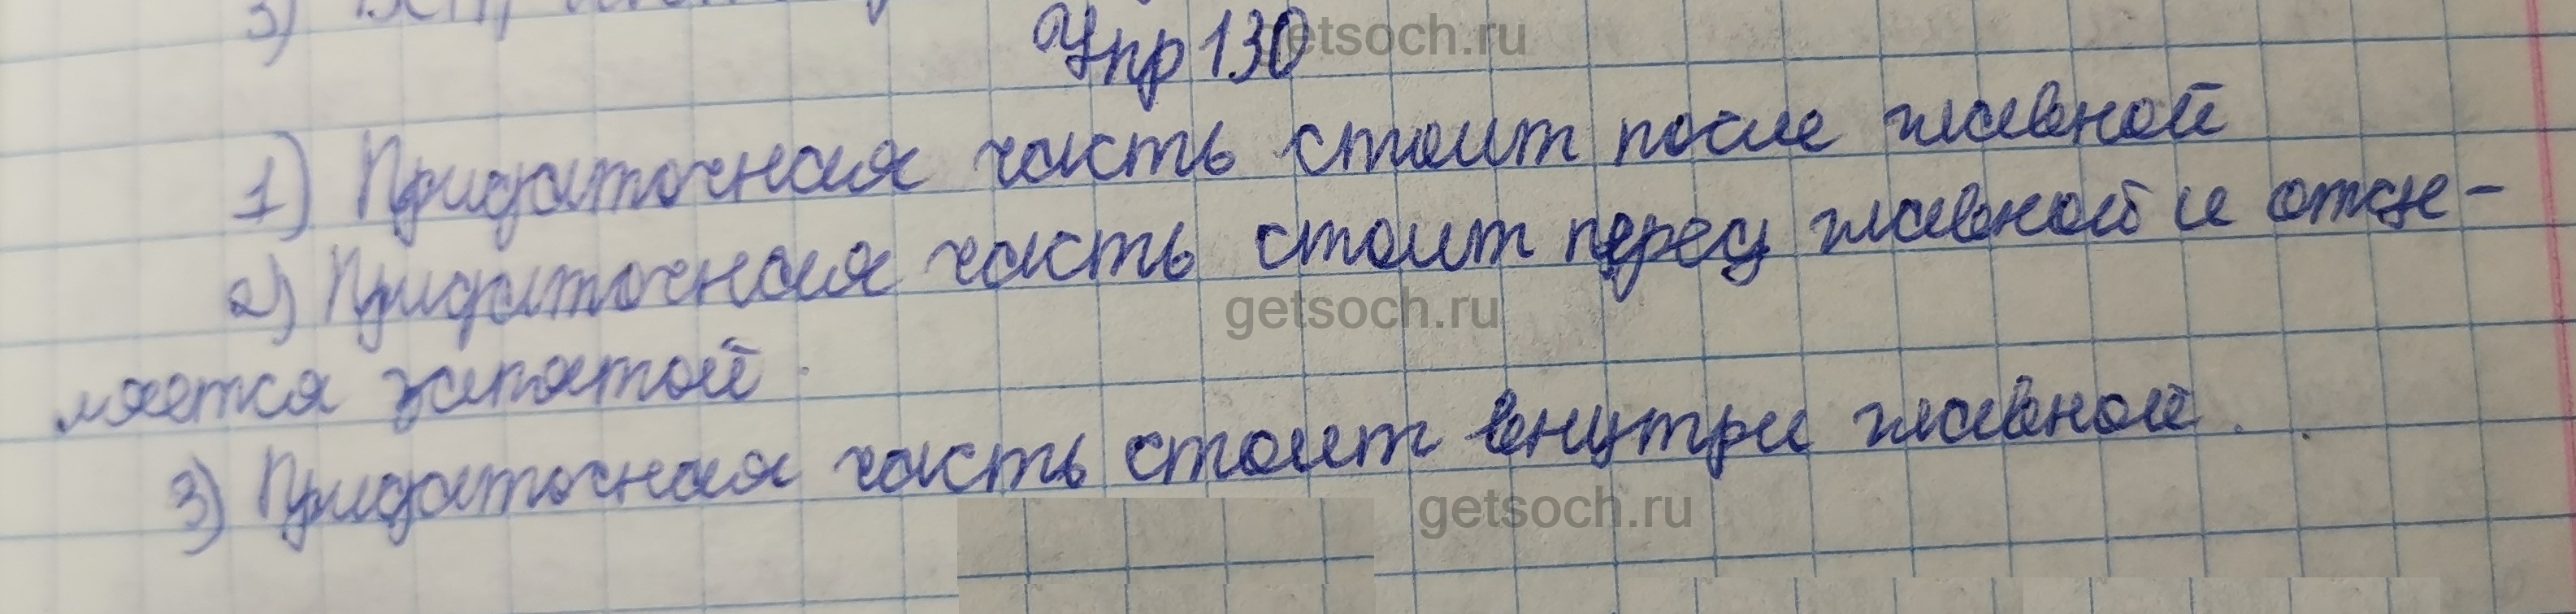 3)
Упр 130
1) Придаточная часть стоит после главной
2) Придаточная часть стоит перед главной и отде-
ляется запятой.
3) Придаточная часть стоит внутри главной.
getsoch.ru
getsoch.ru
getsoch.ru